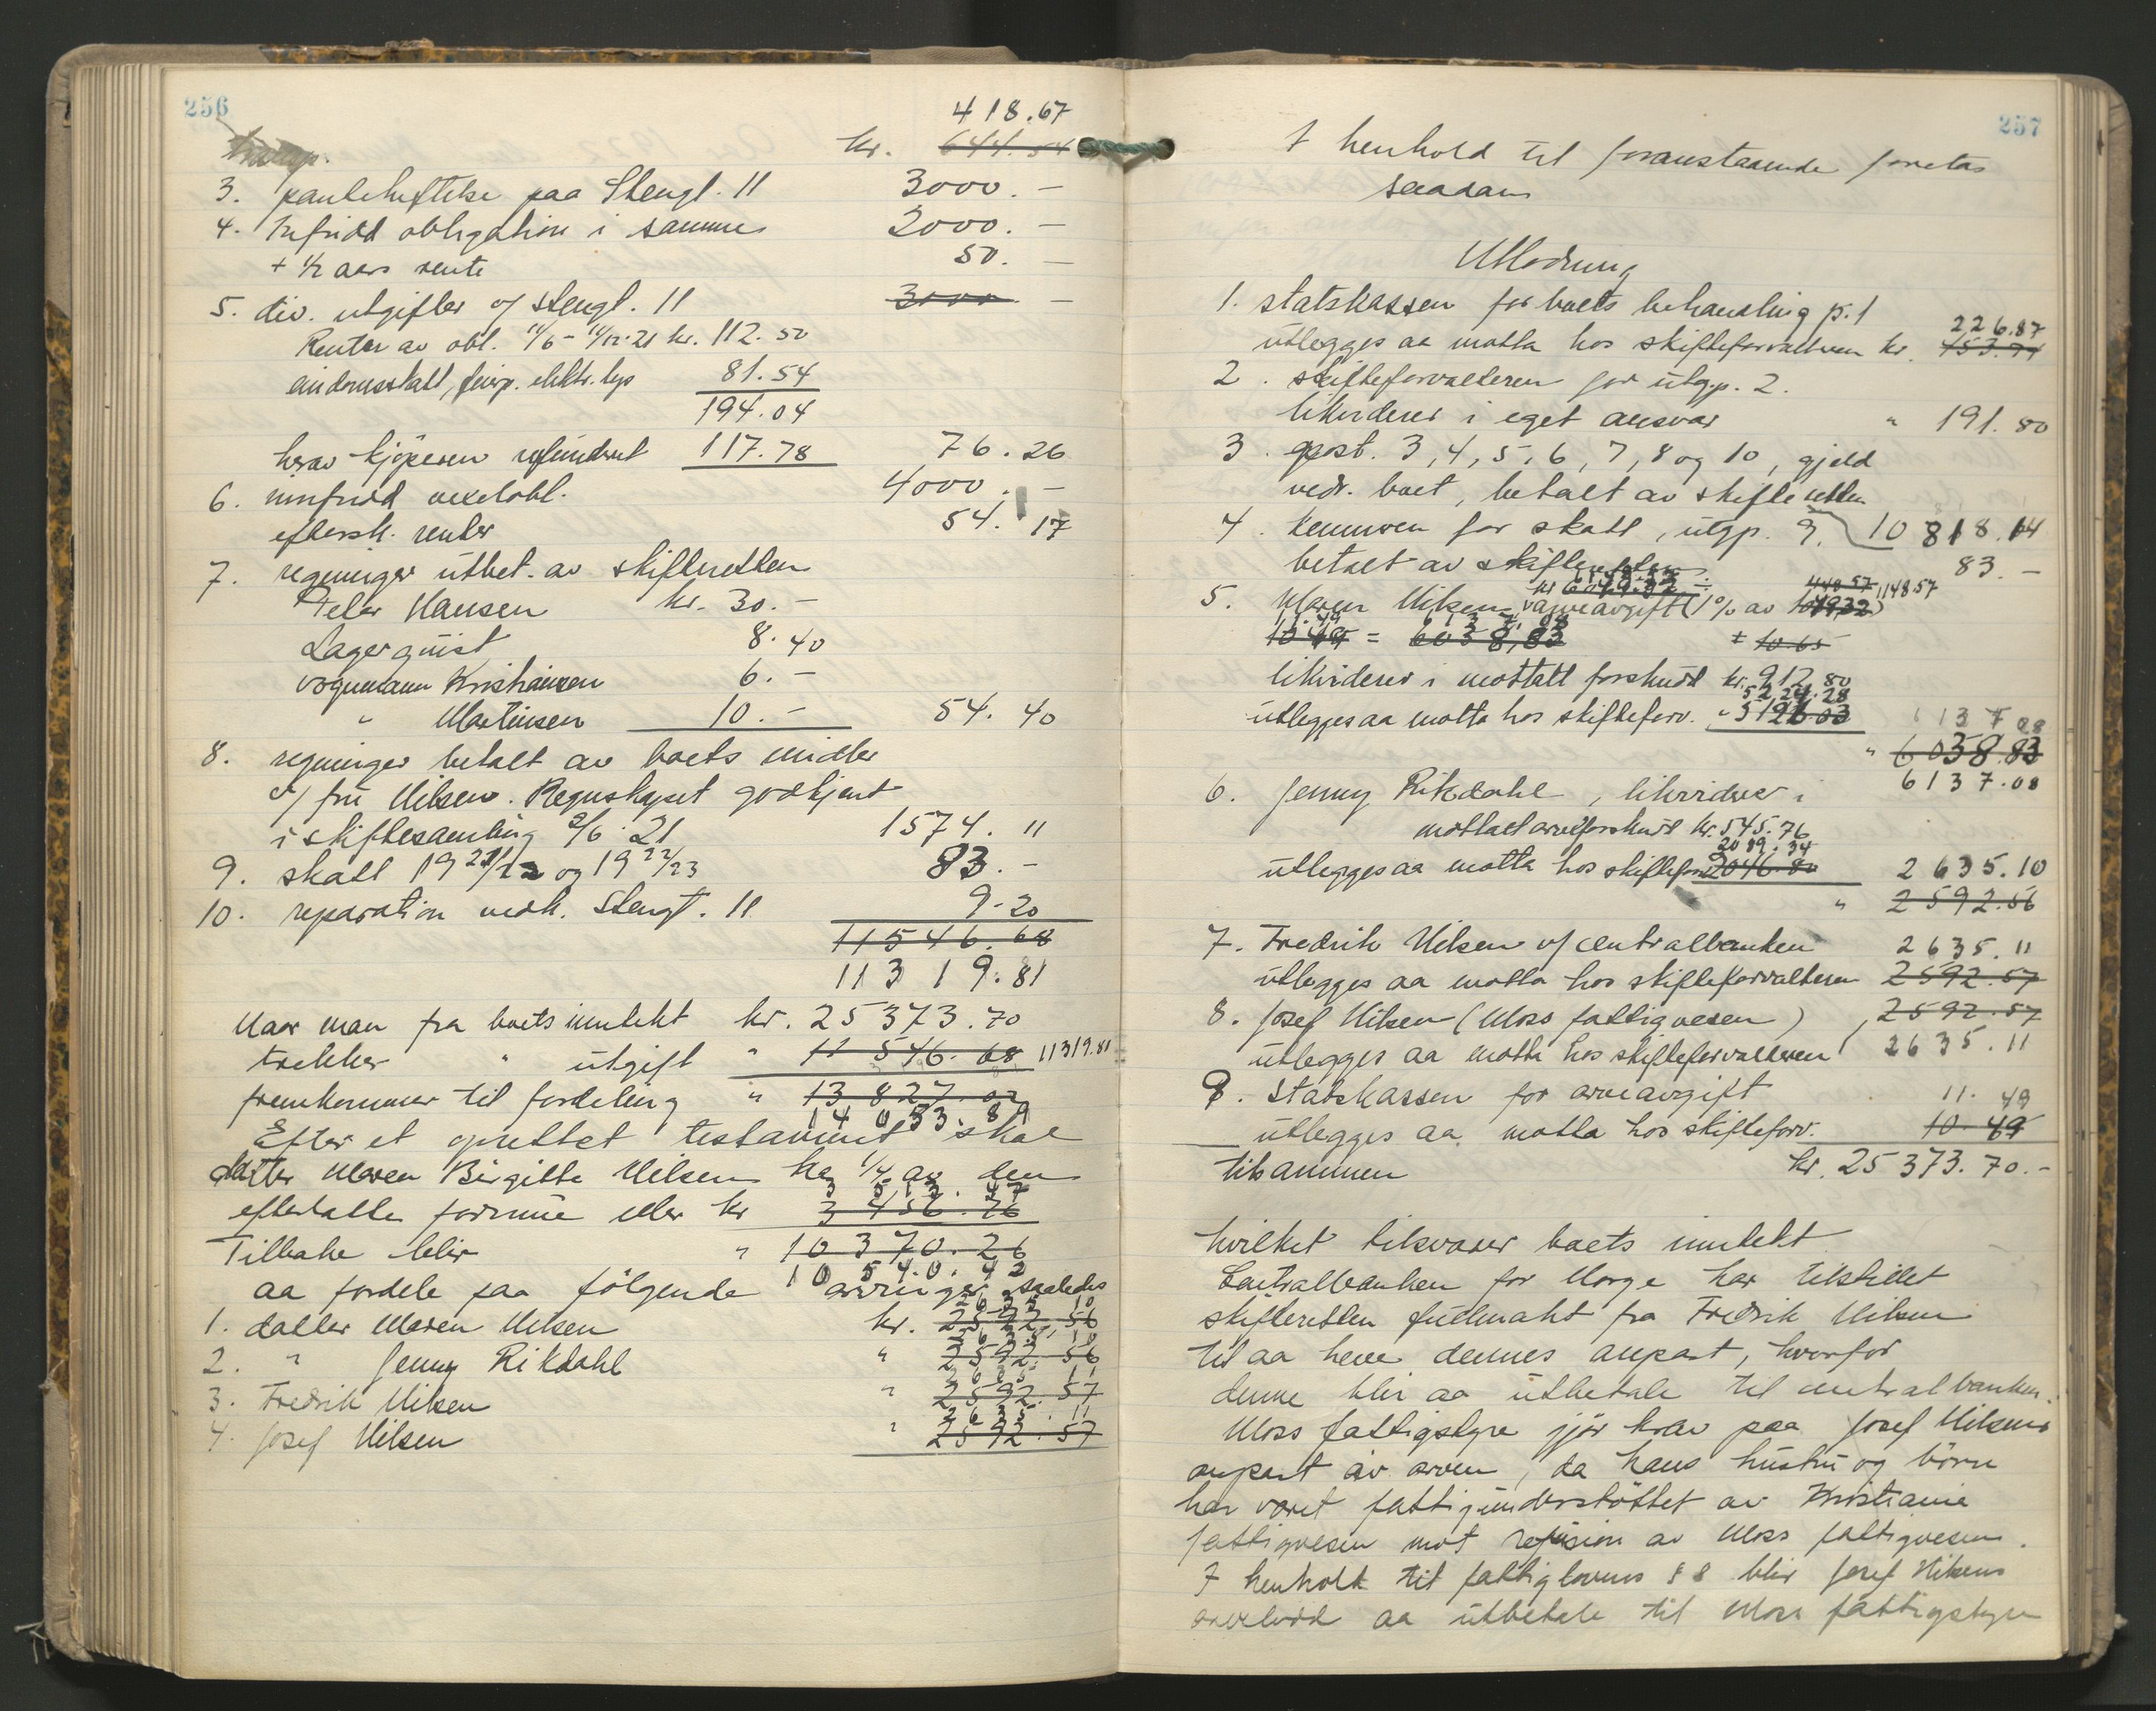 256
418.67
transp. kr. 644.54
3. panteheftelse paa Stengt. 11 3000. –
4. Infridd obligation i samme 2000. –
+ 1/2 aars rente 50. –
5. div. utgifter v/ Stengt. 11 3000. –
Renter av obl. 11/6 – 11/12.21 kr. 112.50
eiendomsskatt, feiep. elektr. lys 81.54
194.04
herav kjöperen refundert 117.78 76.26
6. innfridd vexelobl. 4000. –
eftersk. renter 54.17
7. regninger utbet. av skifteretten
Peter Hansen kr. 30.–
Lagerquist 8.40
vognmann Kristiansen 6.–
" Martinsen 10.– 54.40
8. regninger betalt av boets midler
v/ fru Nilsen. Regnskapet godkjent
i skiftesamling 2/6.21 1574. 11
9. skatt 1921/22 og 1922/23 83.–
10. reparation vedk. Stengt. 11 9.20
11546.68
11319.81
Naar man fra boets inntekt kr. 25373.70
trekker " utgift " 11546.68 11319.81
fremkommer til fordeling " 13827.02
14053.89
Efter et oprettet testament skal
datter Maren Birgitte Nilsen ha 1/4 av den
3513.47
efterlatte formue eller kr 3456.76
Tilbake blir " 10370.26
10540.42
aa fordele paa fölgende arvinger saaledes
2635.10
1. datter Maren Nilsen kr. 2592.56
2635.10
2. " Jenny Rikdahl " 2592.56
2635.11
3. Fredrik Nilsen " 2592.57
2635.11
4. Josef Nilsen " 2592.57
257
I henhold til foranstaaende foretas
saadan
Utlodning
1. statskassen for boets behandling p. 1
226.87
utlegges aa motta hos skifteforvalteren kr. 453.74
2. skifteforvalteren for utg.p. 2.
likviderer i eget ansvar " 191.80
3. post. 3, 4, 5, 6, 7, 8 og 10, gjeld
vedr. boet, betalt av skifteretten
10818.14
4. kemneren for skatt, utgp. 9.
betalt av skifteretten 83.–
5. Maren Nilsen kr 6049.32 ÷ arveavgift (1% av 1049.32) 1148.57
11.49 6137.08
10.49 = 6038,83 + 10.65
likviderer i mottatt forskudd kr. 912.80
5224.28
utlegges aa motta hos skifteforv. " 5126.03 6137.08
" 6038.83
6137.08
6. Jenny Rikdahl, likviderer i
mottatt arveforskudd kr. 545.76
2089.34
utlegges aa motta hos skifteforv. 2046.80 2635.10
" 2592.56
7. Fredrik Nilsen v/ Centralbanken 2635.11
utlegges aa motta hos skifteforvalteren 2592.57
8. Josef Nilsen (Moss fattigvesen) 2592.57
utlegges aa motta hos skifteforvalteren 2635.11
9. Statskassen for arveavgift 11.49
utlegges aa motta hos skifteforv. 10.49
tilsammen kr. 25373.70.–
hvilket tilsvarer boets inntekt
Centralbanken for Norge har tilstillet
skifteretten fullmakt fra Fredrik Nilsen
til aa heve dennes anpart, hvorfor
denne blir aa utbetale til centralbanken.
Moss fattigstyre gjör krav paa Josef Nilsens
anpart av arven, da hans hustru og börn
har været fattigunderstöttet av Kristiania
fattigvesen mot refusion av Moss fattigvesen.
I henhold til fattiglovens § 8 blir Josef Nilsens
arvelodd aa utbetale til Moss fattigstyre